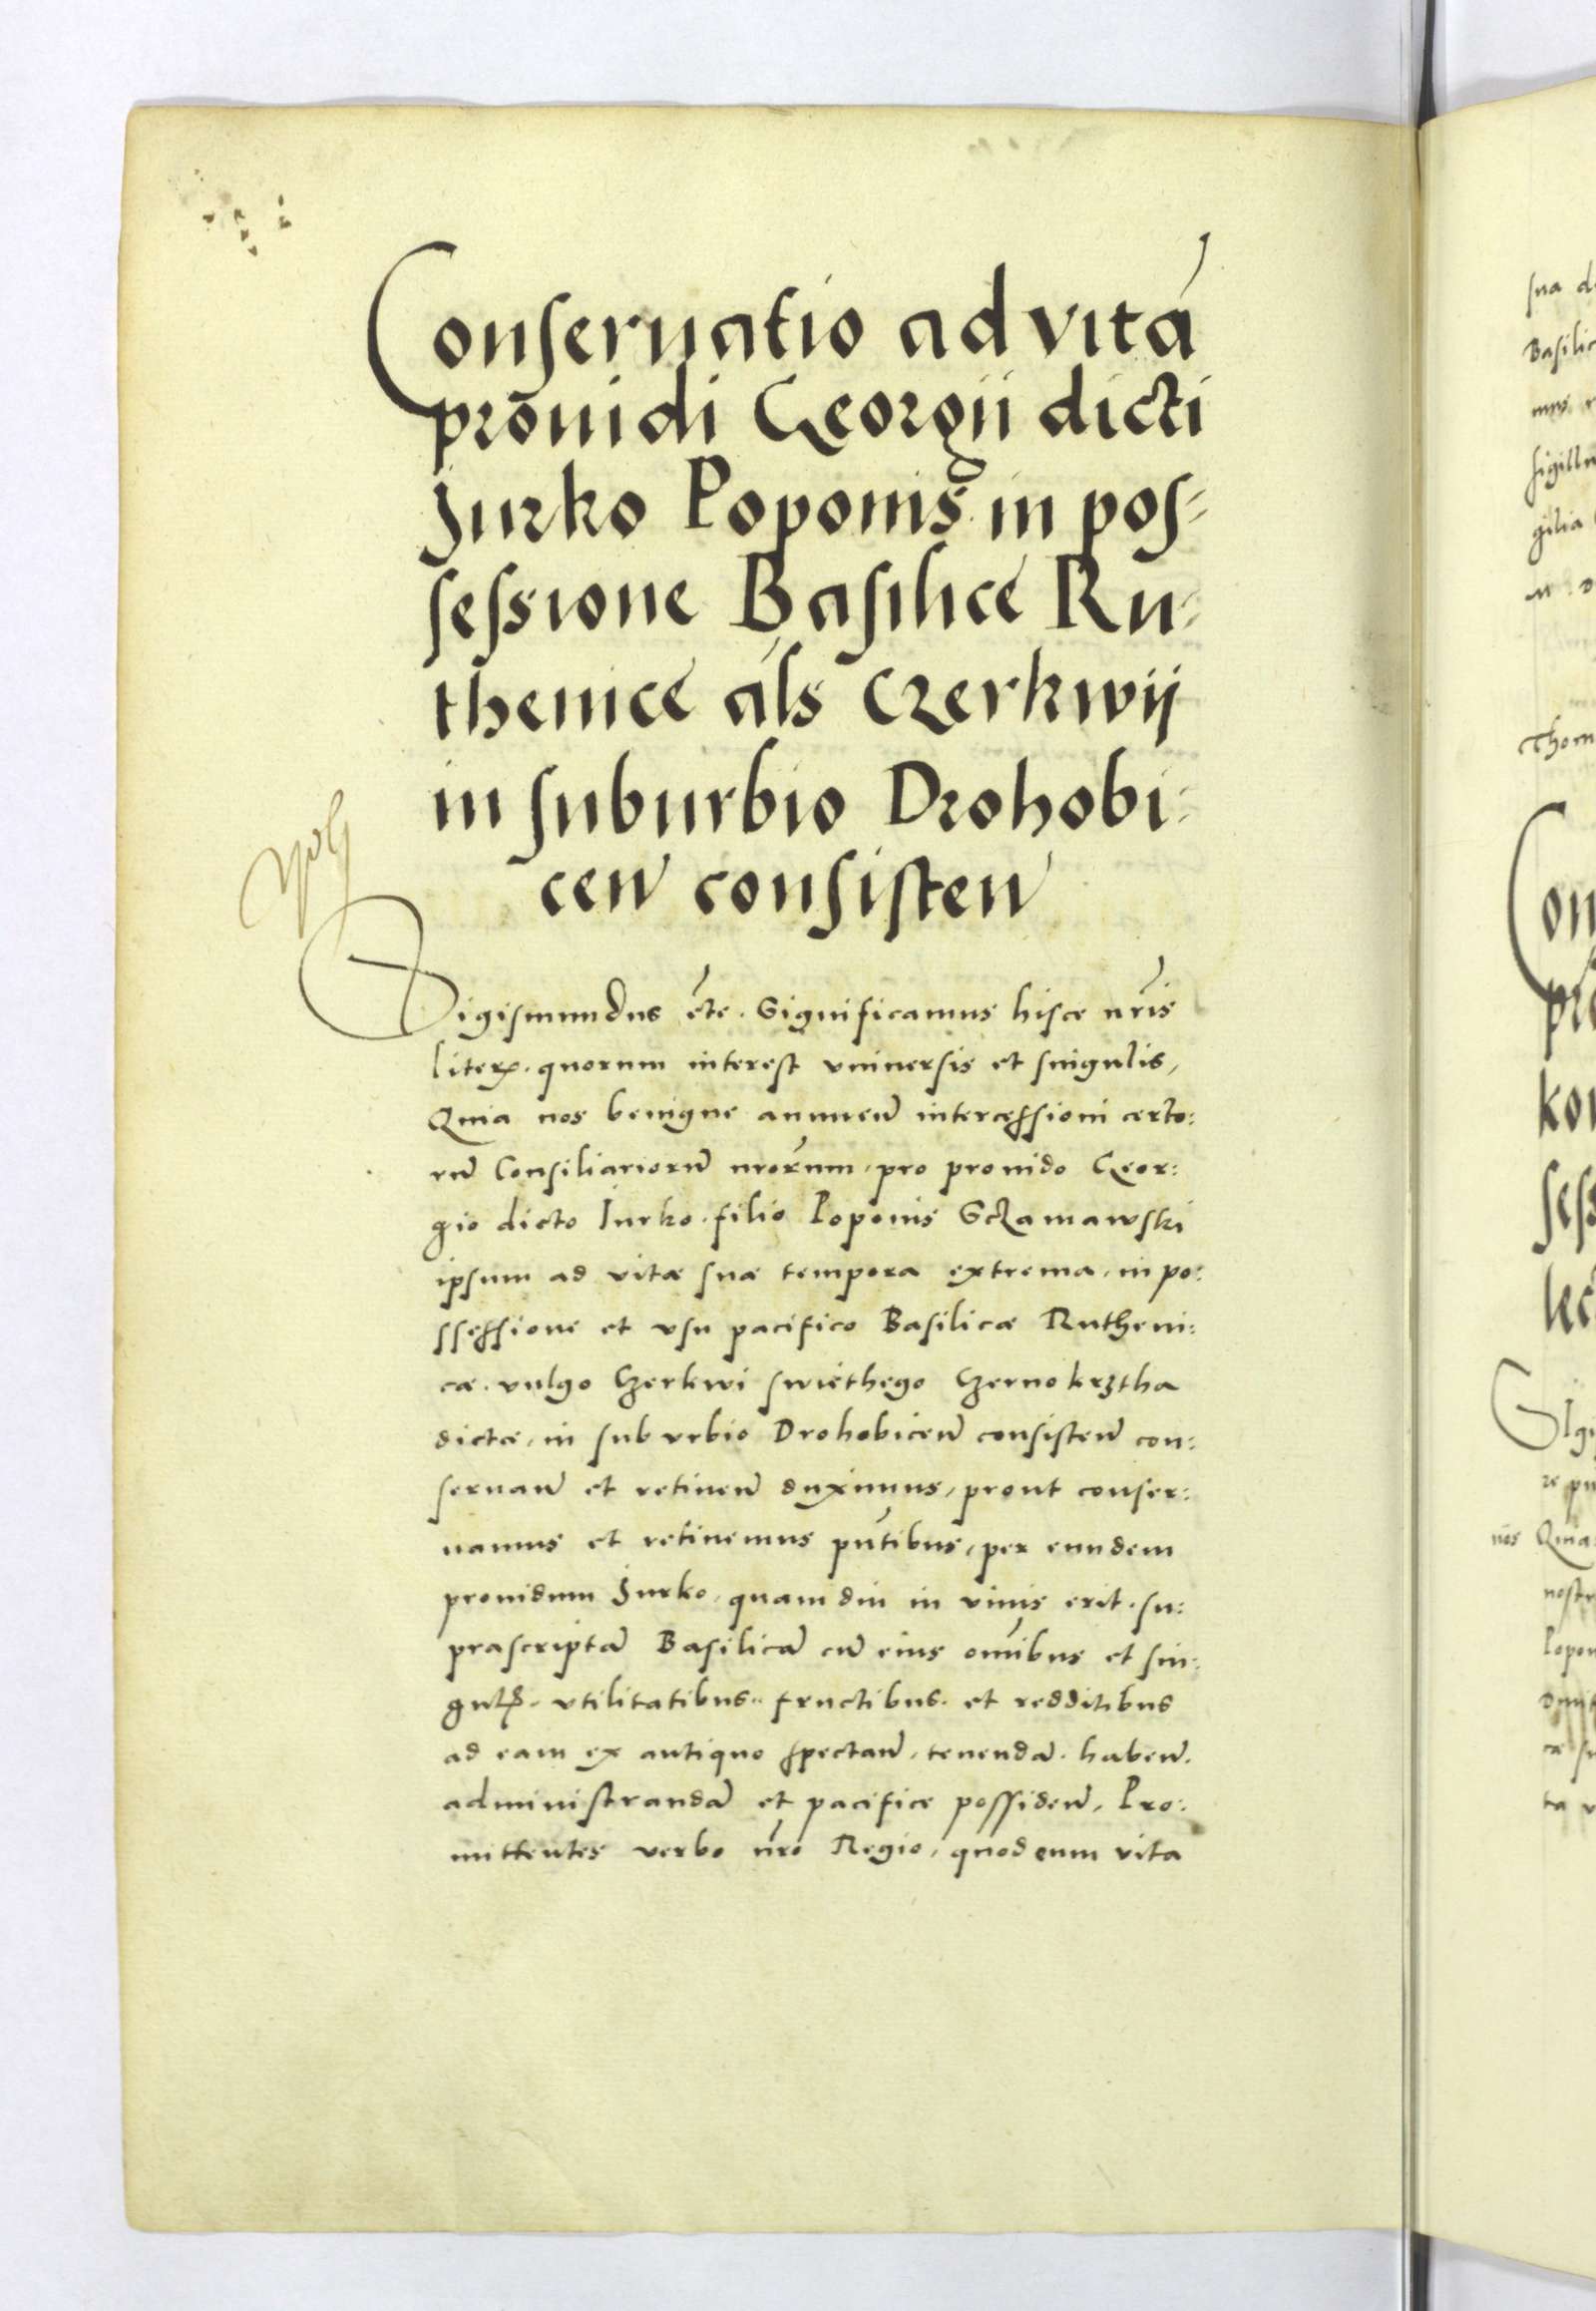 Conseruatio ad vitā
prouidi Georgii dicti
Jurko Poponis in pos-
sessione Basilice Ru-
thenice als Czerkwij
in suburbio Drohobi-
cen̄ consisten̄
Sigismundus etc̄. Significamus hisce nr̄is
literꝭ. quorum interest vniuersis et singulis,
Quia nos benigne annuen̄ intercessioni certo:
rū Consiliariorū nrōrum, pro prouido Geor:
gio dicto Jurko. filio Poponis Sczamawski
ipsum ad vitæ suæ tempora extrema, in po:
ssessione et vsu pacifico Basilicæ Rutheni:
cæ. vulgo Czerkwi swiethego Czerno krztha
dictæ, in suburbio Drohobicen̄ consisten̄ con:
seruan̄ et retinen̄ duximus, prout conser:
uamus et retinemus pn̄tibus, per eundem
prouidum Jurko, quam diu in viuis erit. su:
prascriptā Basilicā cū eius omībus et sin:
gulꝭ. vtilitatibus. fructibus. et redditibus
ad eam ex antiquo spectan̄, tenendā. haben̄.
administrandā et pacifice possiden̄, Pro:
mittentes verbo nr̄o Regio, quod eum vita